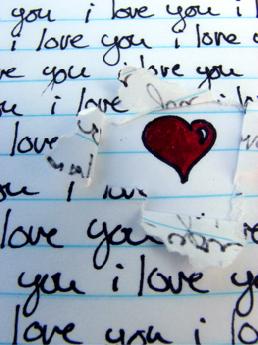 you i love you i
i love you i love
love you i love you
you i love
love
you i love
love you
you i love
love you i lo